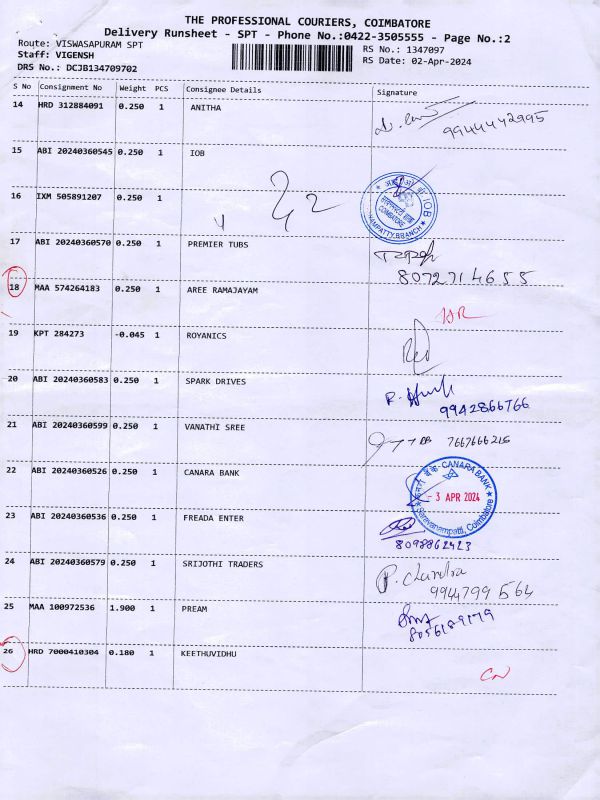 THE PROFESSIONAL COURIERS, COIMBATORE
Delivery Runsheet - SPT - Phone No.:0422-3505555 - Page No.:2
Route: VISWASAPURAM SPT
RS No.: 1347097
Staff: VIGENSH
RS Date: 02-Apr-2024
DRS No.: DCJB134709702
S No Consignment No Weight PCS Consignee Details Signature
14 HRD 312884091 0.250 1 ANITHA
9944442995
15 ABI 20240360545 0.250 1 IOB
16 IXM 505891207 0.250 1
IOB
COIMBATORE
17 ABI 20240360570 0.250 1 PREMIER TUBS
8072714655
18 MAA 574264183 0.250 1 AREE RAMAJAYAM
19 KPT 284273 -0.045 1 ROYANICS
20 ABI 20240360583 0.250 1 SPARK DRIVES
9942866766
21 ABI 20240360599 0.250 1 VANATHI SREE
7667666215
22 ABI 20240360526 0.250 1 CANARA BANK
CANARA BANK
- 3 APR 2024
Saravanampatti, Coimbatore
23 ABI 20240360536 0.250 1 FREADA ENTER
8098862423
24 ABI 20240360579 0.250 1 SRIJOTHI TRADERS
P. Chandra
9944799564
25 MAA 100972536 1.900 1 PREAM
26 HRD 7000410304 0.180 1 KEETHUVIDHU